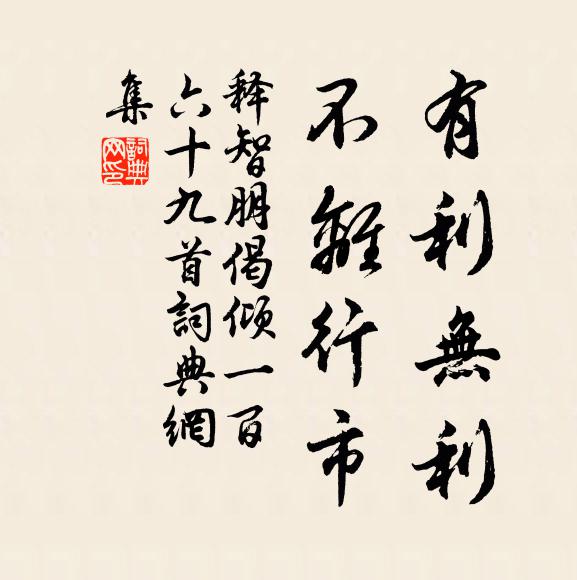 有利無利
不離行市
释智朋偈傾一百
六十九首詞典網
集
詞典
网印